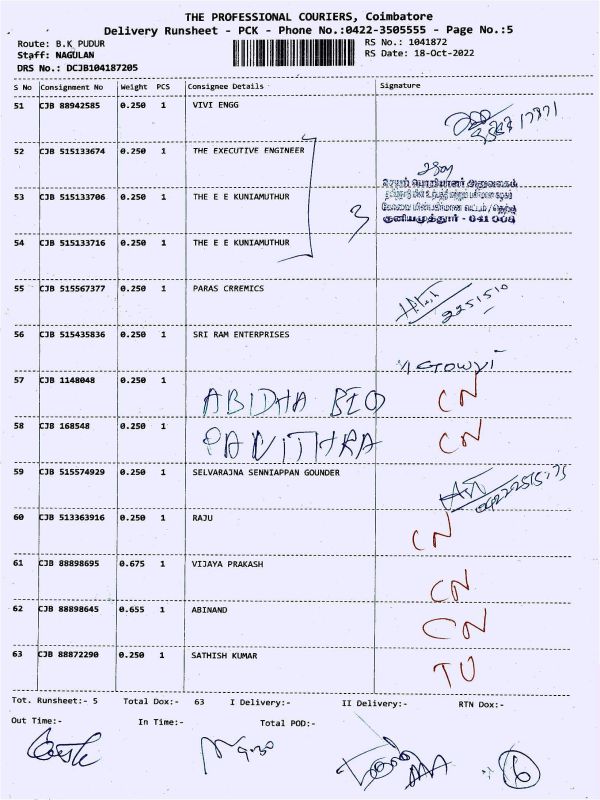 THE PROFESSIONAL COURIERS, Coimbatore
Delivery Runsheet - PCK - Phone No.:0422-3505555 - Page No.:5
Route: B.K_PUDUR RS No.: 1041872
Staff: NAGULAN RS Date: 18-Oct-2022
DRS No.: DCJB104187205
S No Consignment No Weight PCS Consignee Details Signature
51 CJB 88942585 0.250 1 VIVI ENGG
52 CJB 515133674 0.250 1 THE EXECUTIVE ENGINEER
செயற் பொறியாளர் அலுவலகம்
53 CJB 515133706 0.250 1 THE E E KUNIAMUTHUR 3
குனியமுத்தூர் - 641 008
54 CJB 515133716 0.250 1 THE E E KUNIAMUTHUR
55 CJB 515567377 0.250 1 PARAS CRREMICS 2251510
56 CJB 515435836 0.250 1 SRI RAM ENTERPRISES
57 CJB 1148048 0.250 1 ABIDHA BEO CN
58 CJB 168548 0.250 1 PAVITHRA CN
59 CJB 515574929 0.250 1 SELVARAJNA SENNIAPPAN GOUNDER
60 CJB 513363916 0.250 1 RAJU CN
61 CJB 88898695 0.675 1 VIJAYA PRAKASH CN
62 CJB 88898645 0.655 1 ABINAND CN
63 CJB 88872290 0.250 1 SATHISH KUMAR TU
Tot. Runsheet:- 5 Total Dox:- 63 I Delivery:- II Delivery:- RTN Dox:-
Out Time:- In Time:- Total POD:-
16